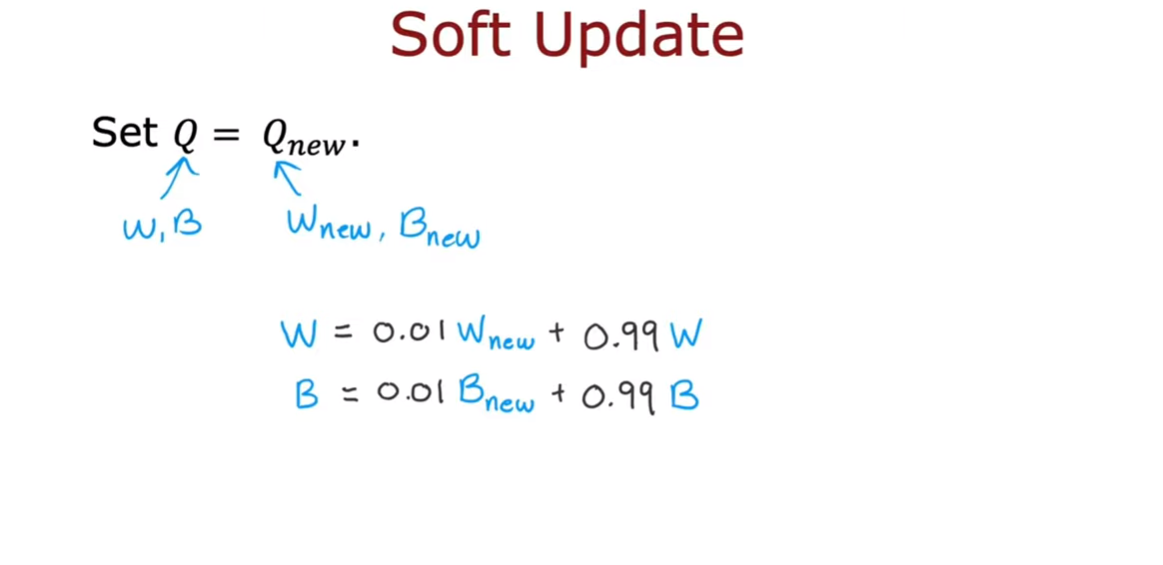 Soft Update
Set Q = Qnew.
W, B Wnew, Bnew
W = 0.01 Wnew + 0.99 W
B = 0.01 Bnew + 0.99 B